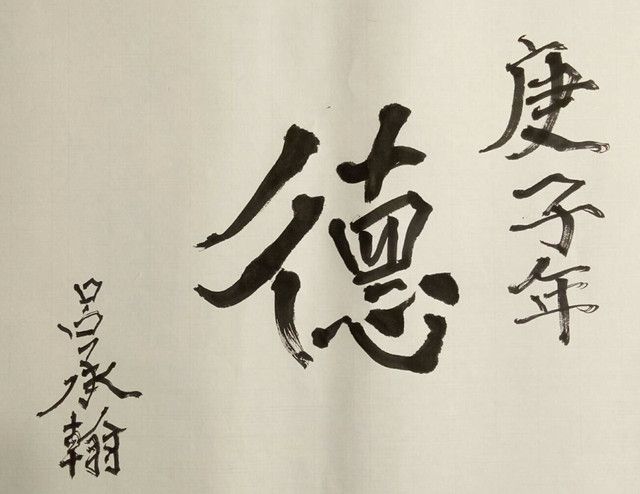 庚子年
德
呂承翰